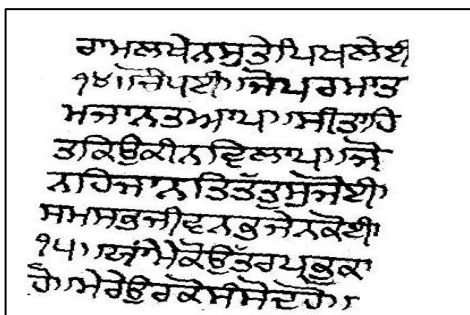 ਰਾਮਲਖੇਨਸੁਤੇਪਿਖਲੇਈ
੧੪॥ਚੌਪਈ॥ਜੋਪਰਮਾਤ
ਮਜਾਨਤਆਪ॥ਸੀਤਾਹਿ
ਤਕਿਉਕੀਨਵਿਲਾਪ॥ਜੋ
ਨਹਿਜਾਨਤਿਤੱਤੁਸੁਜੋਈ॥
ਸਮਸਭੁਜੀਵਨਭੁਜੇਨਕੋਈ॥
੧੫॥ਯਾਂਮੈਕੋਉੱਤਰਪ੍ਰਭੁਕਾ
ਹੈ॥ਮੇਰੇਉਰਕੋਸੰਸੋਦੋਹੋ॥